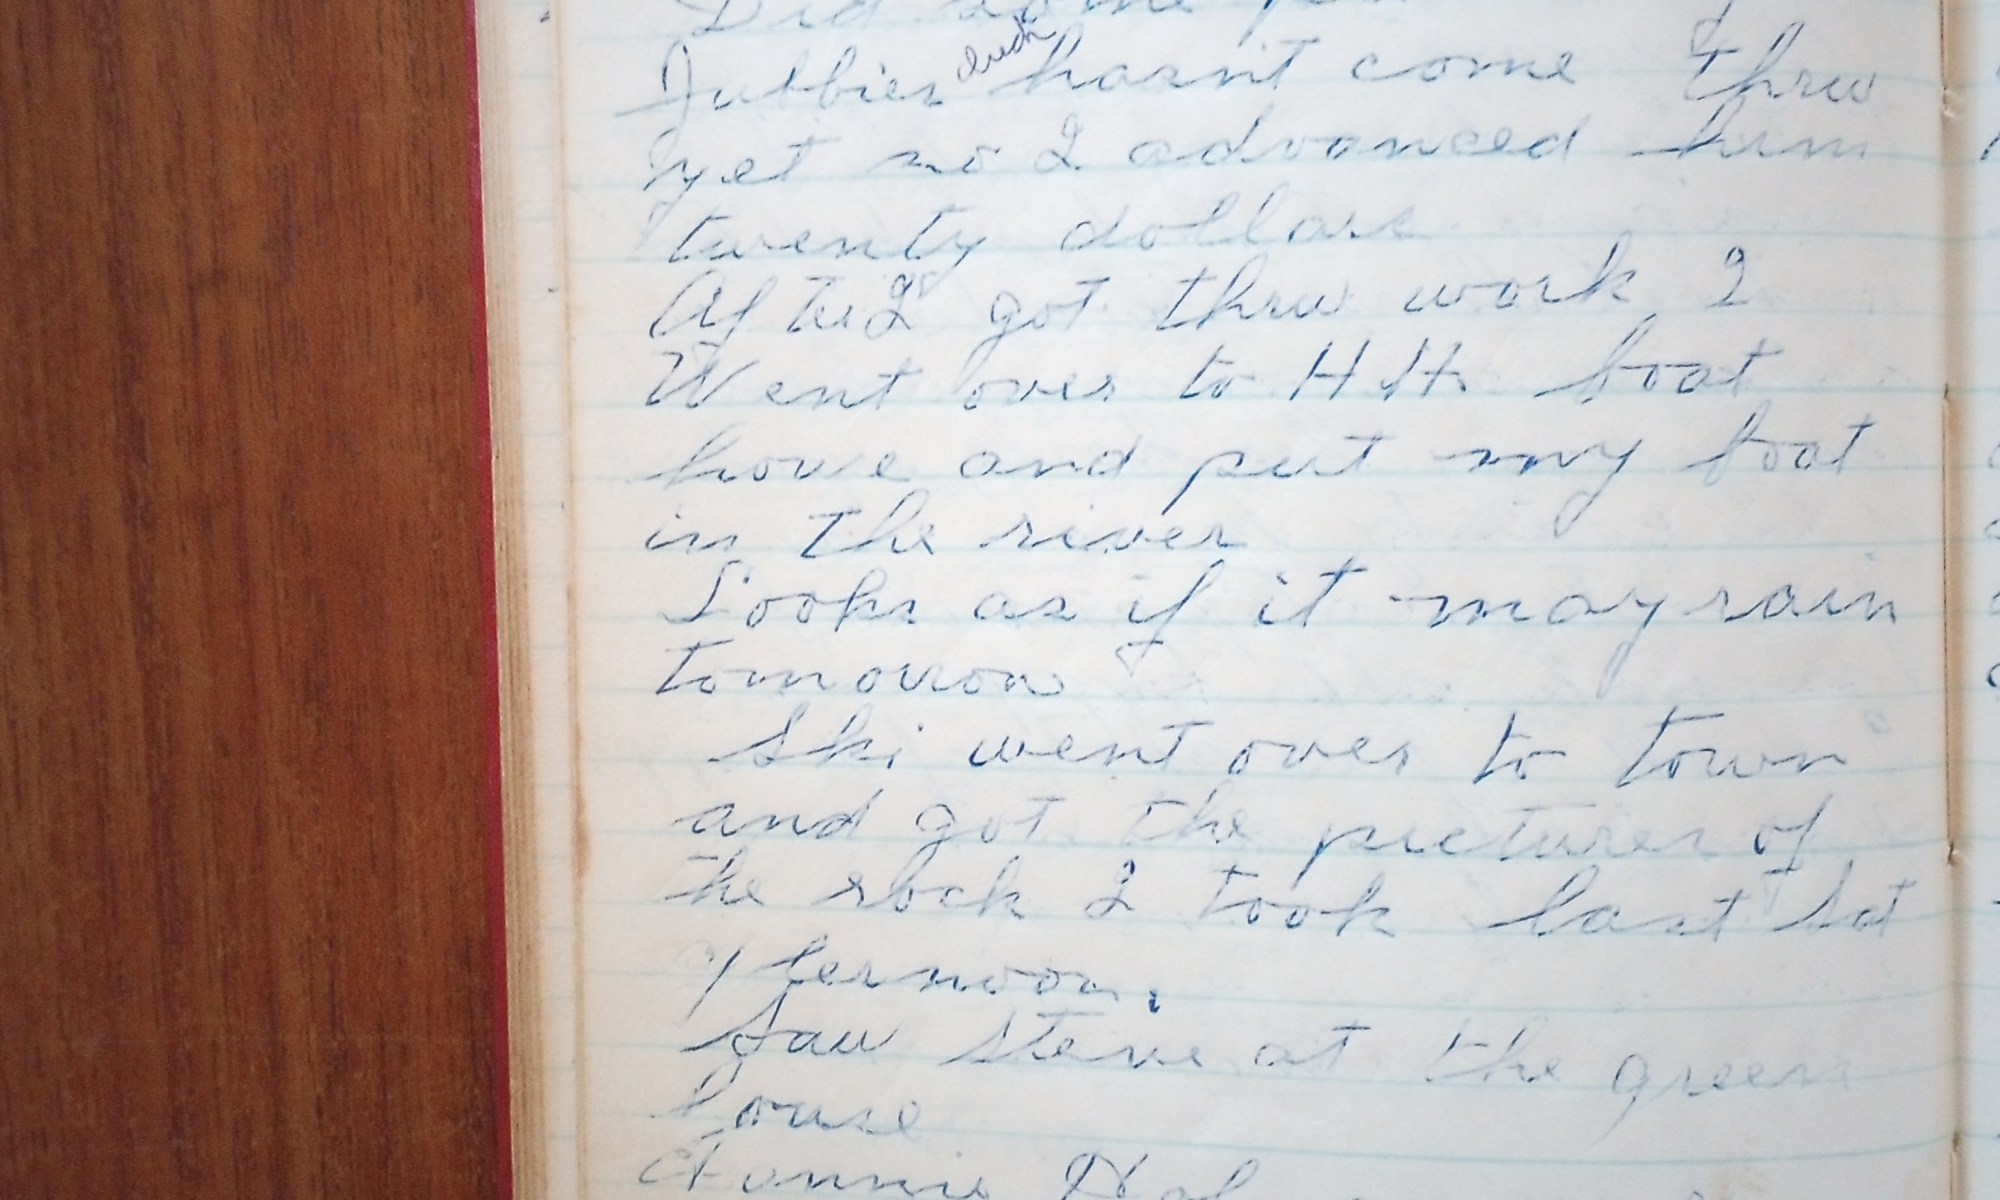 Did some
check
hasn't come thru
yet so I advanced him
twenty dollars
After I got thru work I
Went over to H H. boat
house and put my boat
in the river
Looks as if it may rain
tomorrow
Ski went over to town
and got the pictures of
the rock I took last Sat
afternoon.
Saw Steve at the green
house